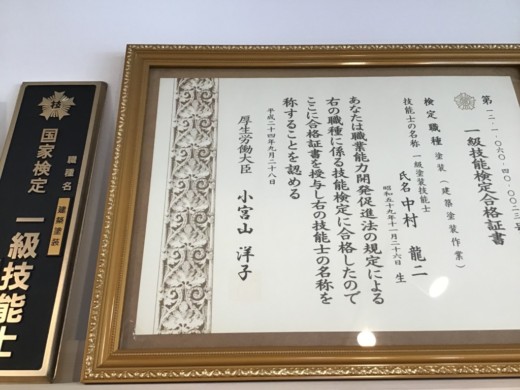 第一二-一-〇六〇-四〇-〇〇一三号
一級技能検定合格証書
検定職種 塗装(建築塗装作業)
技能士の名称 一級塗装技能士
氏名 中村 龍二
昭和五十九年十一月二十六日 生
あなたは職業能力開発促進法の規定による
右の職種に係る技能検定に合格したので
ここに合格証書を授与し右の技能士の名称を
称することを認める
平成二十四年九月二十八日
厚生労働大臣 小宮山 洋子
技
職種名 建築塗装
国家検定 一級技能士